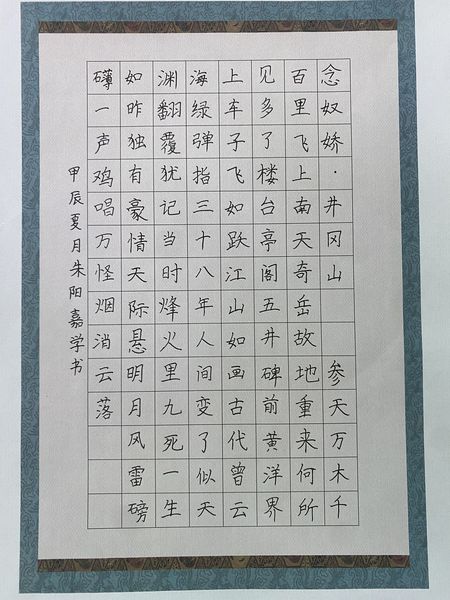 念奴娇·井冈山 参天万木千
百里飞上南天奇岳故地重来何所
见多了楼台亭阁五井碑前黄洋界
上车子飞如跃江山如画古代曾云
海绿弹指三十八年人间变了似天
渊翻覆犹记当时烽火里九死一生
如昨独有豪情天际悬明月风雷磅
礴一声鸡唱万怪烟消云落
甲辰夏月朱阳嘉学书